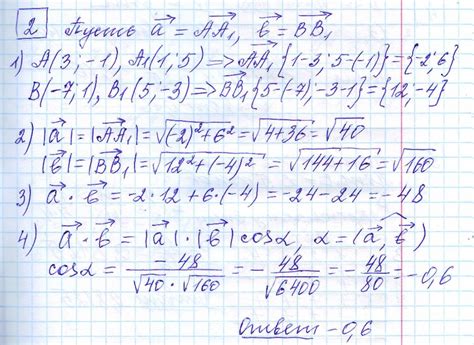 2 Пусть a⃗ = AA₁⃗, b⃗ = BB₁⃗
1) A(3;-1), A₁(1;5) => AA₁⃗{1-3;5-(-1)}={-2;6}
B(-7;1), B₁(5;-3) => BB₁⃗{5-(-7);-3-1}={12,-4}
2) |a⃗|=|AA₁⃗|=√((-2)²+6²)=√(4+36)=√40
|b⃗|=|BB₁⃗|=√(12²+(-4)²)=√(144+16)=√160
3) a⃗·b⃗=-2·12+6·(-4)=-24-24=-48
4) a⃗·b⃗=|a⃗|·|b⃗|cosα, α=(a⃗,^b⃗)
cosα=-48/(√40·√160)=-48/√6400=-48/80=-0,6
Ответ -0,6